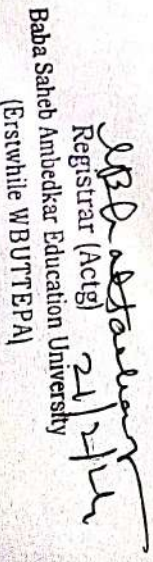 Registrar (Actg)
Baba Saheb Ambedkar Education University
(Erstwhile WBUTTEPA)